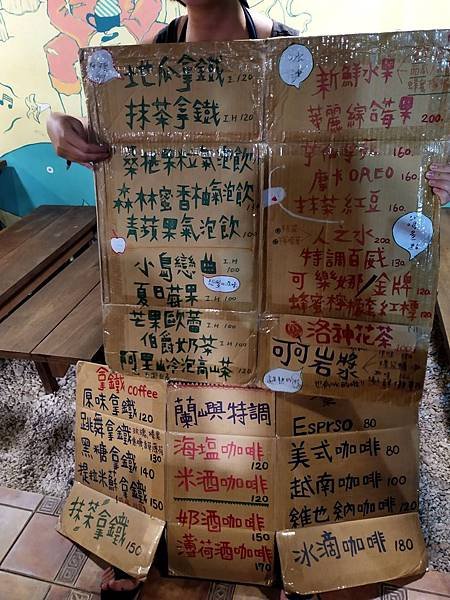 地瓜拿鐵 I. 120
抹茶拿鐵 I.H 120
桑椹果粒氣泡飲
森林蜜香柚氣泡飲
青蘋果氣泡飲 100
小島戀 I.H 100
夏日莓果
芒果歐蕾 I.H 100
伯爵奶茶
阿里山冷泡高山茶
冰沙
新鮮水果
華麗綜合莓果 200
160
摩卡OREO 160
抹茶紅豆 160
人之水 200
特調百威 130
可樂娜/金牌 120
蜂蜜檸檬蜜紅標 120
洛神花茶
呵呵岩漿
拿鐵 coffee
原味拿鐵 120
跳舞拿鐵 130
黑糖拿鐵 140
提拉米蘇拿鐵 150
抹茶拿鐵 150
蘭嶼特調
海塩咖啡 120
米酒咖啡 120
奶酒咖啡 150
薄荷酒咖啡 170
Esprso 80
美式咖啡 80
越南咖啡 100
維也納咖啡 120
冰滴咖啡 180